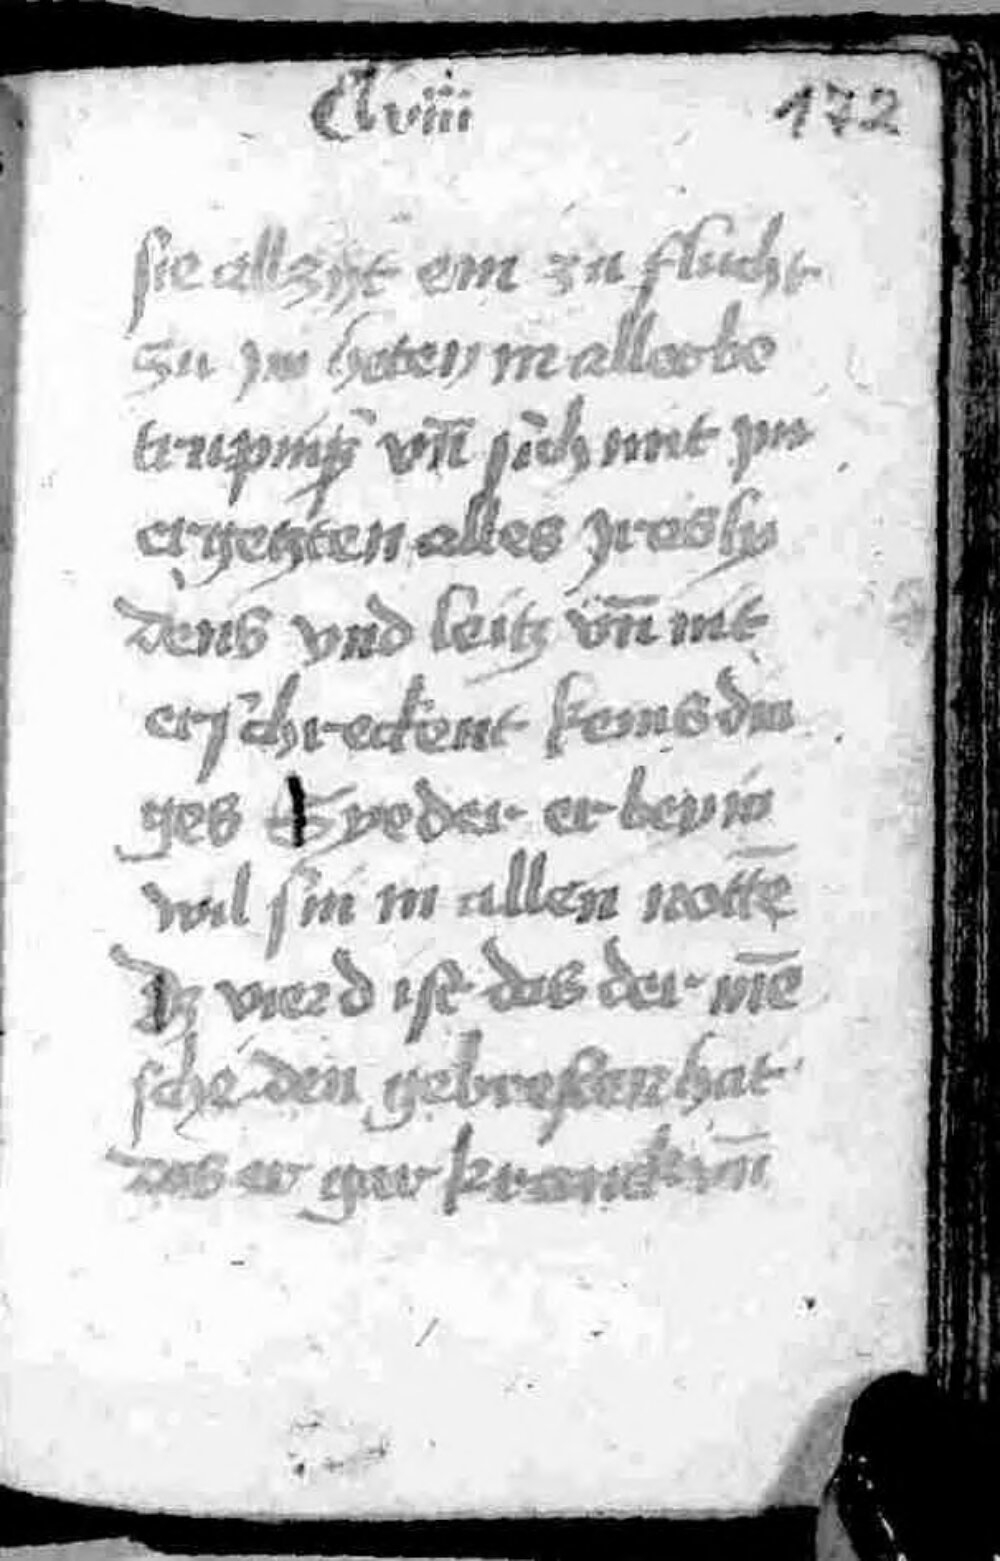 Clviii 172
sie allzyt ein zu flucht
zu ym heten in aller be
trupniß vñ sich mit ym
ergetzten alles yres ly
dens vnd leitz vñ nit
erschreckent keins din
ges Syeder er bey in
wil sin in allen notte̅
Dz vierd ist das der me̅
sche den gebresten hat
das er gar kranck vñ